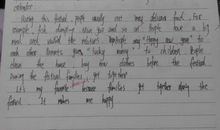 calendar
During this festival people usually eat many delicious food. For
example, fish, dumplings, rice and so on. People have a big
meal and visited the relatives.
each other. Parents give "lucky money" to children. People
clean the house, buy new clothes before the festival.
During the festival families get together
It's my favorite because families get together during the
festival. It makes me happy